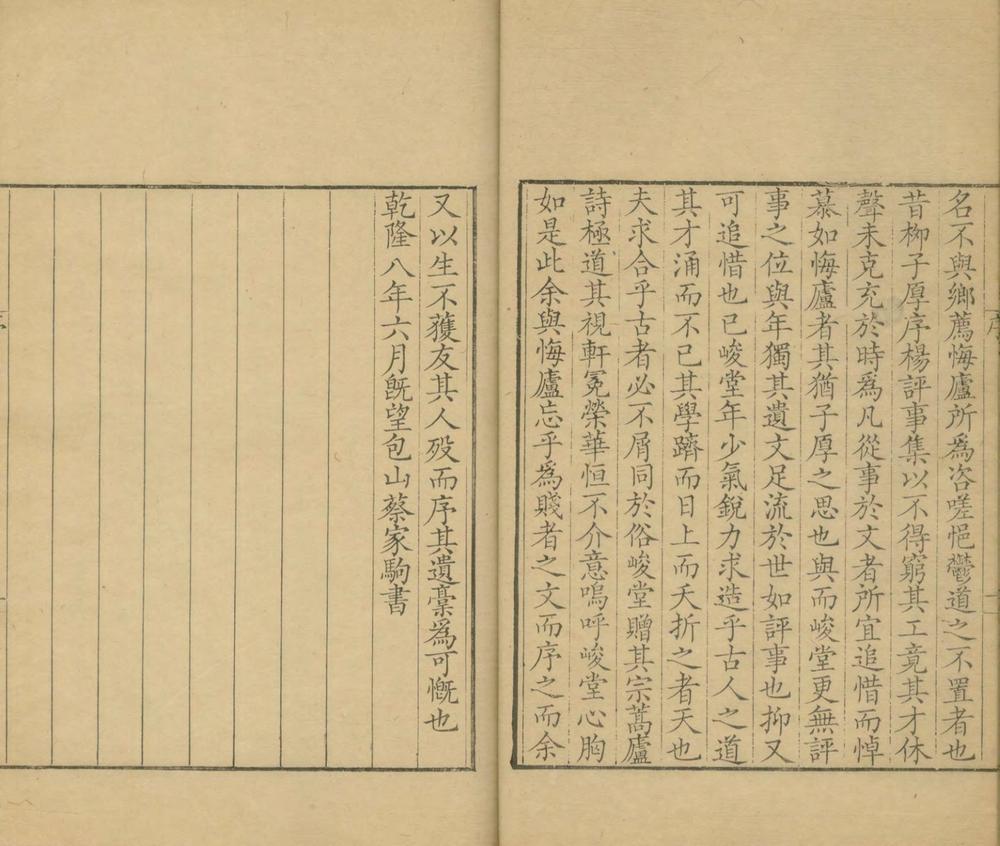 名不與鄉薦悔廬所為咨嗟悒鬱道之不置者也
昔柳子厚序楊評事集以不得窮其工竟其才休
聲未克充於時爲凡從事於文者所宜追惜而悼
慕如悔廬者其猶子厚之思也與而峻堂更無評
事之位與年獨其遺文足流於世如評事也抑又
可追惜也已峻堂年少氣銳力求造乎古人之道
其才涌而不已其學躋而日上而夭折之者天也
夫求合乎古者必不屑同於俗峻堂贈其宗蒿廬
詩極道其視軒冕榮華恒不介意嗚呼峻堂心胸
如是此余與悔廬忘乎爲賤者之文而序之而余
又以生不獲友其人殁而序其遺稾爲可慨也
乾隆八年六月旣望包山蔡家駒書